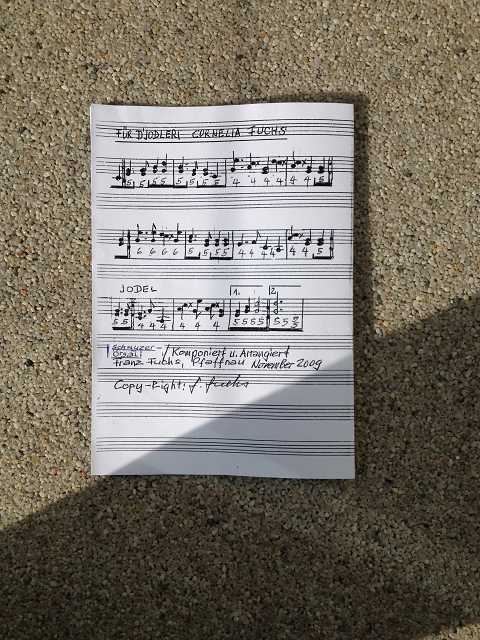 FÜR D'JODLERI CORNELIA FUCHS
5 5 5 5 5 5 5 5 4 4 4 4 4 4 5
5 6 6 6 6 5 5 5 5 4 4 4 4 4 4 5
JODEL 1. 2.
5 5 4 4 4 4 4 4 5 5 5 5 5 5
Schwyzer-
Örgeli / Komponiert u. Arrangiert
Franz Fuchs, Pfaffnau November 2009
Copy-Right: f. fuchs